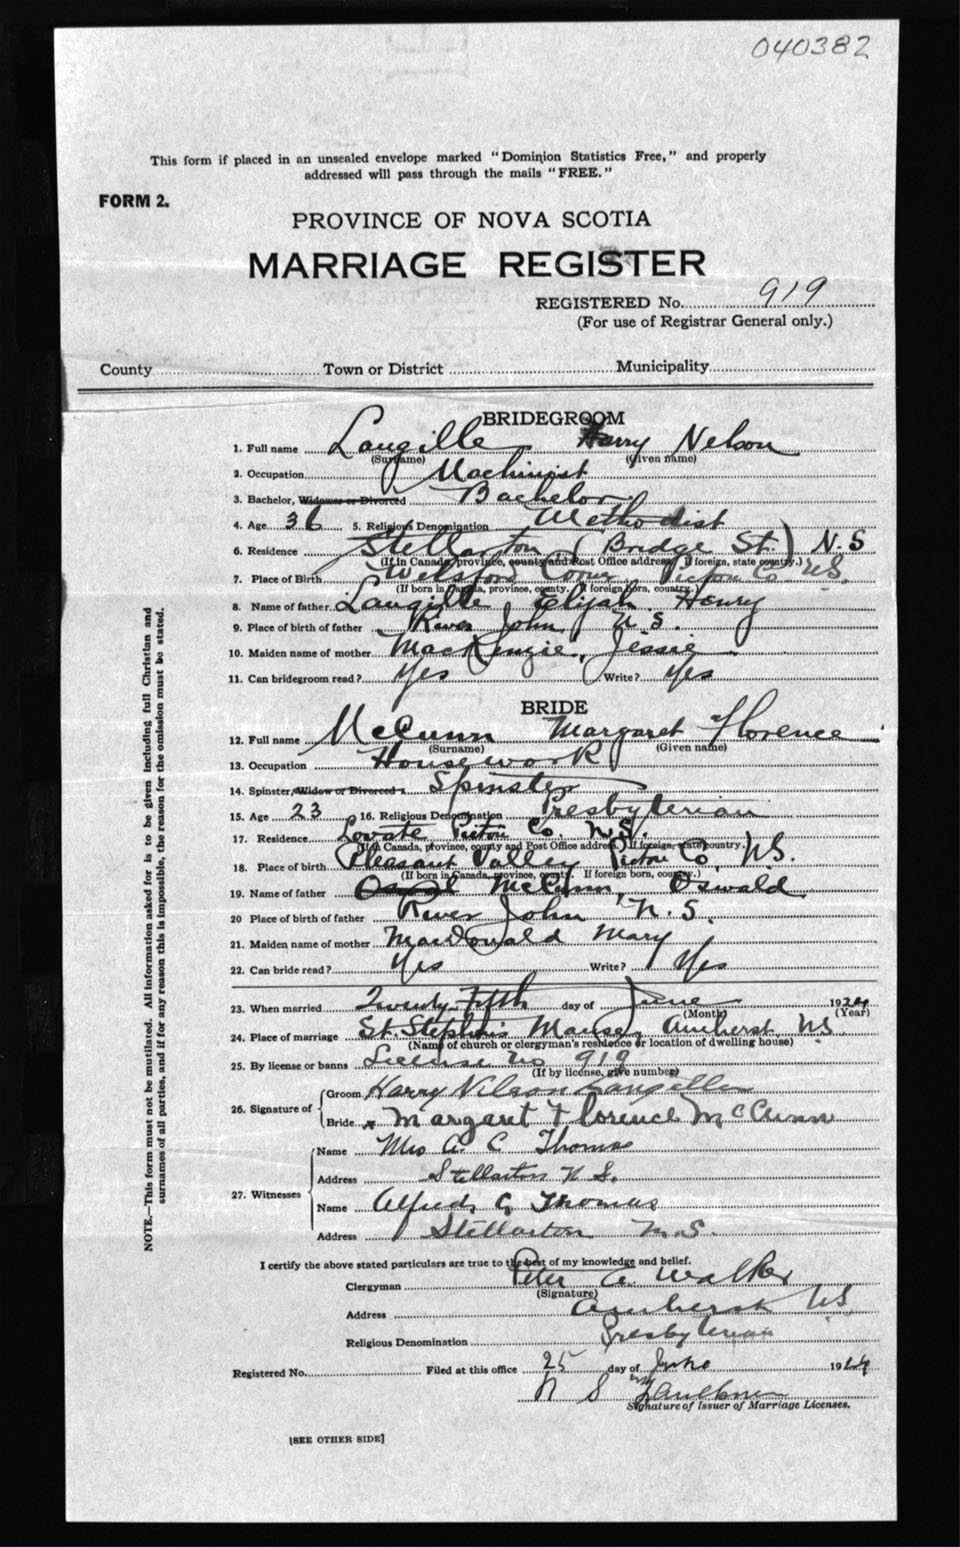 040382
This form if placed in an unsealed envelope marked "Dominion Statistics Free," and properly
addressed will pass through the mails "FREE."
FORM 2.
PROVINCE OF NOVA SCOTIA
MARRIAGE REGISTER
REGISTERED No. 919
(For use of Registrar General only.)
County Town or District Municipality
BRIDEGROOM
1. Full name Langille Harry Nelson
(Surname) (Given name)
2. Occupation Machinist
3. Bachelor, Widower or Divorced Bachelor
4. Age 36 5. Religious Denomination Methodist
6. Residence Stellarton (Bridge St.) N.S
(If in Canada, province, county and Post Office address. If foreign, state country.)
7. Place of Birth Welsford Pictou Co N.S.
(If born in Canada, province, county. If foreign born, country.)
8. Name of father Langille Elijah Henry
9. Place of birth of father River John N.S.
10. Maiden name of mother MacKenzie, Jessie
11. Can bridegroom read? Yes Write? Yes
BRIDE
12. Full name McCunn Margaret Florence
(Surname) (Given name)
13. Occupation Housework
14. Spinster, Widow or Divorced Spinster
15. Age 23 16. Religious Denomination Presbyterian
17. Residence Lovate Pictou Co. N.S.
(If in Canada, province, county and Post Office address. If foreign, state country.)
18. Place of birth Pleasant Valley Pictou Co. N.S.
(If born in Canada, province, county. If foreign born, country.)
19. Name of father McCunn, Oswald
20 Place of birth of father River John N.S.
21. Maiden name of mother MacDonald Mary
22. Can bride read? Yes Write? Yes
23. When married Twenty-Fifth day of June 1924
(Month) (Year)
24. Place of marriage St. Stephen's Manse, Amherst N.S
(Name of church or clergyman's residence or location of dwelling house)
25. By license or banns License No 919
(If by license, give number)
26. Signature of Groom Harry Nelson Langille
Bride Margaret Florence McCunn
27. Witnesses Name Mrs A. C Thomas
Address Stellarton N.S.
Name Alfred C Thomas
Address Stellarton N.S.
I certify the above stated particulars are true to the best of my knowledge and belief.
Clergyman Peter A. Walker
(Signature)
Address Amherst N.S.
Religious Denomination Presbyterian
Registered No. Filed at this office 25 day of June 1924
N S Faulkner
Signature of Issuer of Marriage Licenses.
[SEE OTHER SIDE]
NOTE.—This form must not be mutilated. All information asked for is to be given including full Christian and
surnames of all parties, and if for any reason this is impossible, the reason for the omission must be stated.